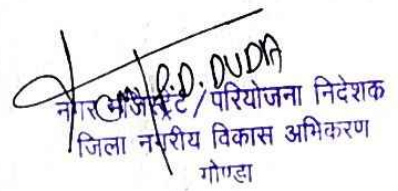 P.D. DUDA
नगर मजिस्ट्रेट / परियोजना निदेशक
जिला नगरीय विकास अभिकरण
गोण्डा